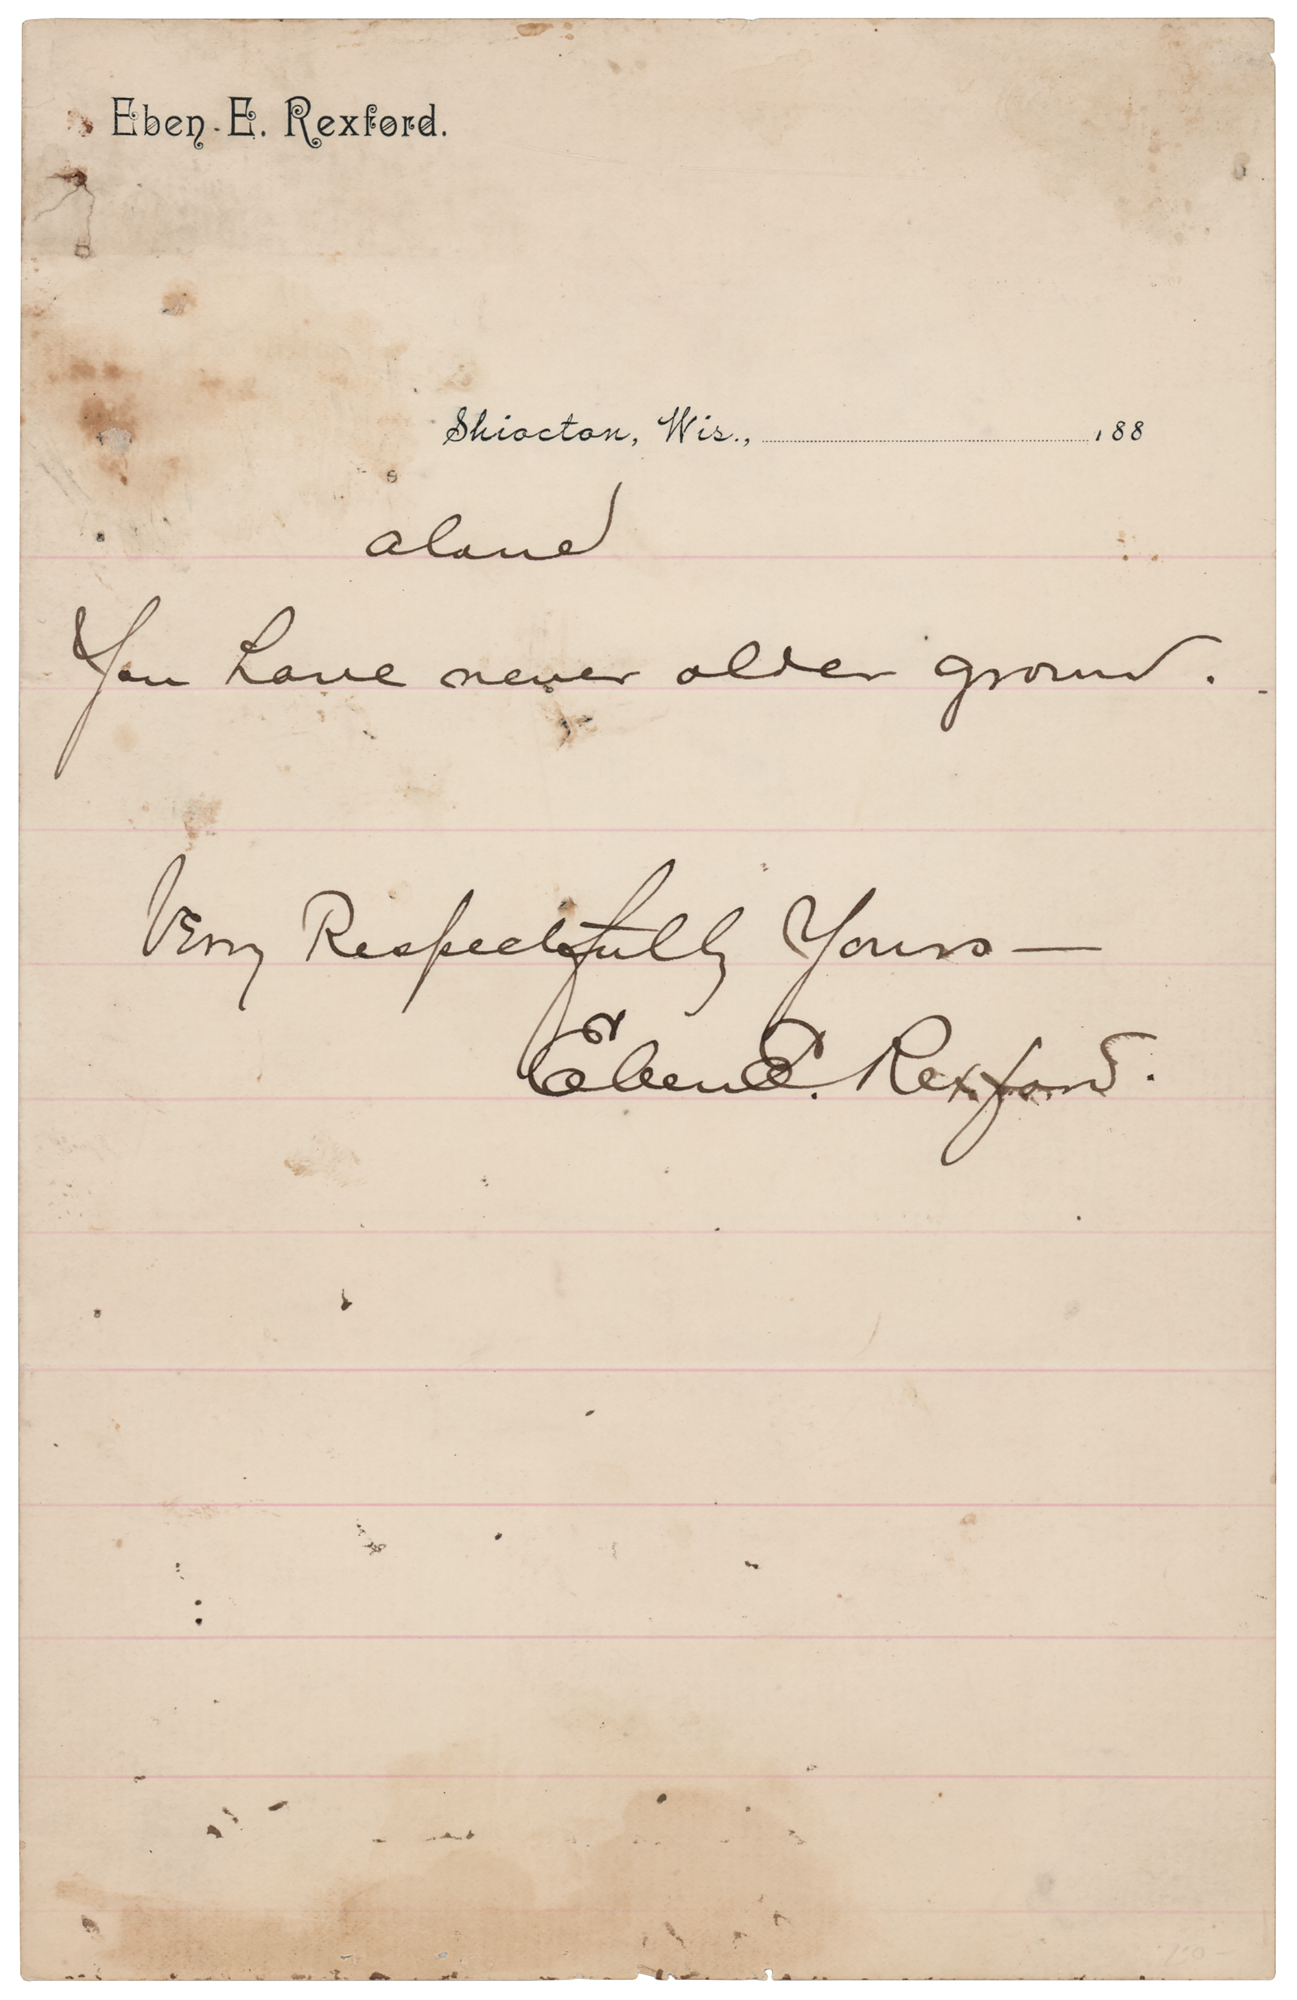 Eben E. Rexford.
Shiocton, Wis., 188
alone
You have never older grown.
Very Respectfully Yours—
Eben E. Rexford.